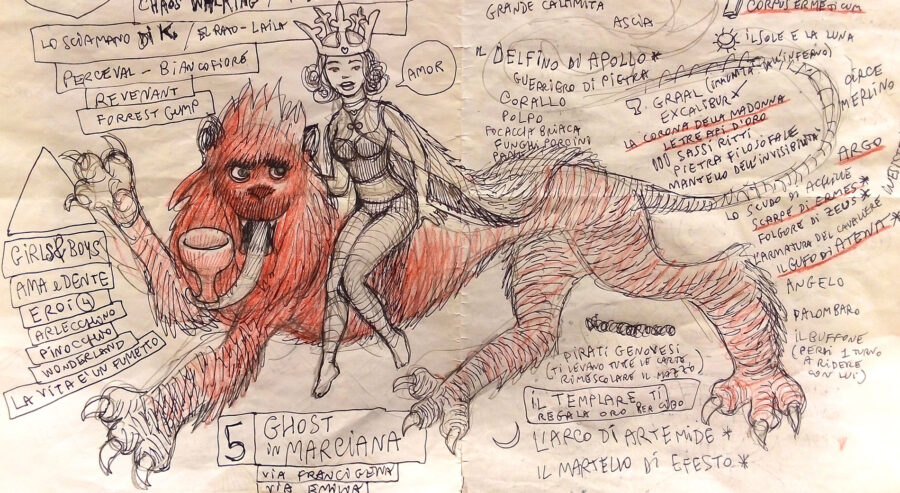 CHAOS WALKING /
LO SCIAMANO DI K. / EL RATO - LAILA
PERCEVAL - BIANCOFIORE
REVENANT
FORREST GUMP
AMOR
GIRLS & BOYS
AMA e DENTE
EROI (4)
ARLECCHINO
PINOCCHIO
WONDERLAND
LA VITA E' UN FUMETTO
5
GHOST
in MARCIANA
VIA FRANCIGENA
VIA EMILIA
GRANDE CALAMITA
ASCIA
IL DELFINO DI APOLLO *
GUERIGRO DI PIETRA
CORALLO
POLPO
FOCACCIA BRIACA
FUNGHI PORCINI
PANE
CORPUS ERMETICUM
IL SOLE E LA LUNA
GRAAL (IMMUNITA ALL'INFERNO)
EXCALIBUR
LA CORONA DELLA MADONNA
LE TRE API D'ORO
100 SASSI RITTI
PIETRA FILOSOFALE
MANTELLO DELL'INVISIBILITA'
CIRCE
MERLINO
ARGO
LO SCUDO DI ACHILLE
SCARPE DI ERMES *
FOLGORE DI ZEUS *
L'ARMATURA DEL CAVALIERE
IL GUFO DI ATENA *
ANGELO
PALOMBARO
IL BUFFONE
(PERDI 1 TURNO
A RIDERE
CON LUI)
PIRATI GENOVESI
(TI LEVANO TUTTE LE CARTE
RIMESCOLARE IL MAZZO)
IL TEMPLARE TI
REGALA ORO PER CUBO
L'ARCO DI ARTEMIDE *
IL MARTELLO DI EFESTO *